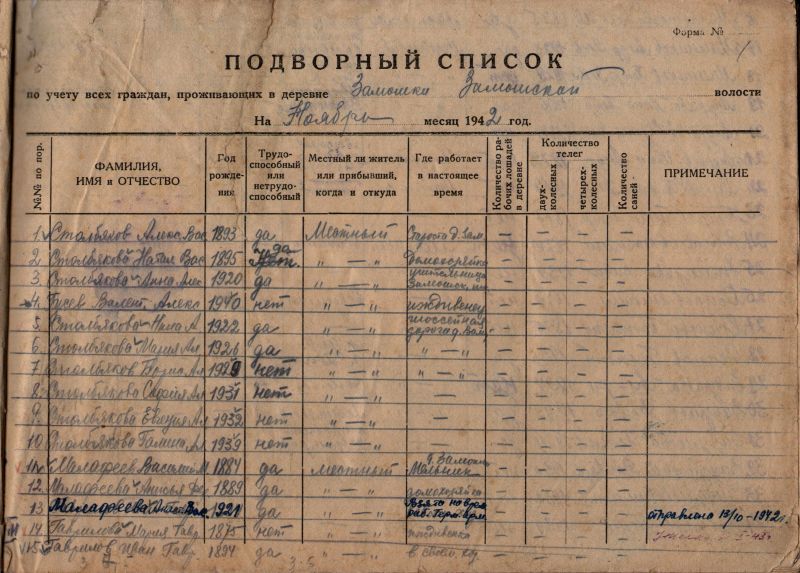 Форма №
ПОДВОРНЫЙ СПИСОК
по учету всех граждан, проживающих в деревне Замошки Замошской волости
На Ноябрь месяц 1942 год.
№№ по пор.
ФАМИЛИЯ, ИМЯ и ОТЧЕСТВО
Год рожде-ния
Трудо-способный или нетрудо-способный
Местный ли житель или прибывший, когда и откуда
Где работает в настоящее время
Количество ра-бочих лошадей в деревне
Количество телег
двух-колесных
четырех-колесных
Количество саней
ПРИМЕЧАНИЕ
1. Столбяков Алекс Вас 1893 да Местный Староста д. Зам. — — — —
2 Столбякова Натал Вас 1895 да нет. " — " Домохозяйка — — — —
3. Столбякова Анна Алек 1920 да " — " учительница Замошск. — — — —
4. Гусев Валент. Алекс 1940 нет " — " иждивенец — — — —
5. Столбякова Нина А 1922 да " — " шоссейная дорога д. Зам. — — — —
6 Столбякова Мария Ал да " — " " — " — — — —
7 Столбяков Ал 1929 нет " — " " — " — — — —
8. Столбякова Ал 1931 нет " — " — — — —
9. Столбякова Ал нет " — " — — — —
10 Столбякова Галина Ал 1939 нет " — " — — — —
11. Малафеев Василий М 1884 да местный д. Замошки Мельник — — — —
12. Малафеева Анисья 1889 да " — " домохозяйка — — — —
13 Малафеева Вас. 1921 да " — " Взята на врем. раб. Герм. арм. — — — — отправлена 13/10 - 1942 г.
14. Гаврилова Мария Гавр 1875 нет " — " иждивенка — — — —
15. Гаврилов Иван Гавр 1894 да " — " в своем хоз. — — — —